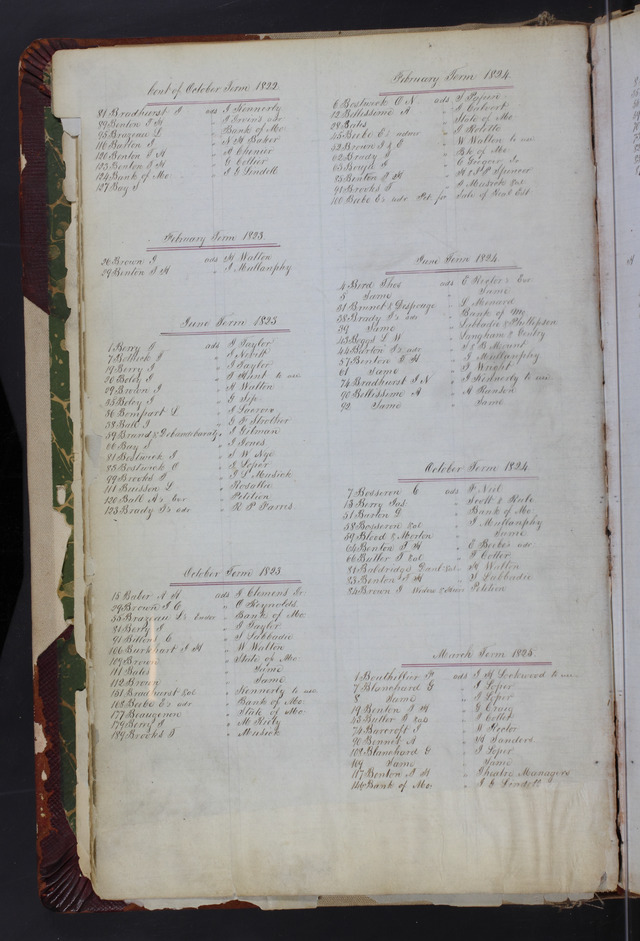 Cont of October Term 1822
81 Bradhurst I ads J Kennerly
89 Benton T H " J Irvin's
95 Brazeau L " Bank of Mo
116 Batton I " S H Baker
120 Benton T H " A Chenier
123 Benton T H " G Collier
124 Bank of Mo " J G Lindell
127 Bay S
February Term 1823
26 Brown J ads H Walton
29 Benton T H " J Mullanphy
June Term 1823
1 Berry J ads J Taylor
7 Bostick J " J Nevitt
19 Berry J " J Taylor
26 Boley J " to use
29 Brown J " H Walton
35 Boley J " G
36 Bompart L "
38 Ball J " G F Strother
59 Brand & Debandebaraty " J Gilman
66 Bay S " J Jones
81 Bostwick J " S W Nye
85 Bostwick O " J Loper
99 Brooks J " J S Musick
111 Buisson L " Rosattie
120 Ball A's Exr " Petition
123 Brady T's adr " R P Farres
October Term 1823
15 Baber A H ads J Clemens Jr
29 Brown J C " C Reynolds
55 Brazeau L's " Bank of Mo
81 Berry J " J Taylor
91 Billow C " S Labbadie
106 Burkhart J H " W Walton
109 Brown " State of Mo
111 Bates " Same
112 Brown " Same
151 Bradhurst Exl " Kennerly to use
168 Beebe E's adr " Bank of Mo
177 Beaugenou " State of Mo
179 Berry J " M
189 Brooks T " Musick
February Term 1824
6 Bostwick O N ads J
12 Bellissime A " J Calvert
28 Bates " State of Mo
45 Beebe E's admr " J Rolette
53 Brown J & E " W Walton to use
62 Brady J " Bk of Mo
63 Boyd J " C Gregoire Jr
85 Benton T H " H & P Spencer
91 Brooks T " J Musick Exl
108 Beebe E's adr Pet. for Sale of Real Est
June Term 1824
4 Bird Thos ads E Rector's Exr
5 Same " Same
31 Brunet & Despeaye " L Menard
38 Brady T's adr " Bank of Mo
39 Same " Labbadie & Phillipson
43 Boyd L W " Langham & Gentry
44 Barlow J's adr " S & B Mount
57 Benton T H " J Mullanphy
61 Same " J Wright
74 Bradhurst J N " J Kennerly to use
90 Bellissime A " A Huston
92 Same " Same
October Term 1824
7 Bosseron C ads P Neil
13 Berry Jas " Scott & Rule
51 Burton D " Bank of Mo
58 Bosseron Exl " J Mullanphy
59 Blood & Morton " Same
64 Benton T H " E Beebe's adr
66 Butler J Exl " J Collet
81 Baldridge Danl Exl " H Walton
83 Benton T H " S Labbadie
84 Brown J Widow & Heirs " Petition
March Term 1825
1 Bouthillier F ads J H Lockwood to use
7 Blanchard G " J Loper
8 Same " J Loper
19 Benton T H " G Craig
43 Butler J Exl " J Collet
74 Barcroft J " W Rector
90 Bennet A " W Sanders
108 Blanchard G " J Loper
109 Same " Same
117 Benton T H " Theatre Managers
146 Bank of Mo " J G Lindell